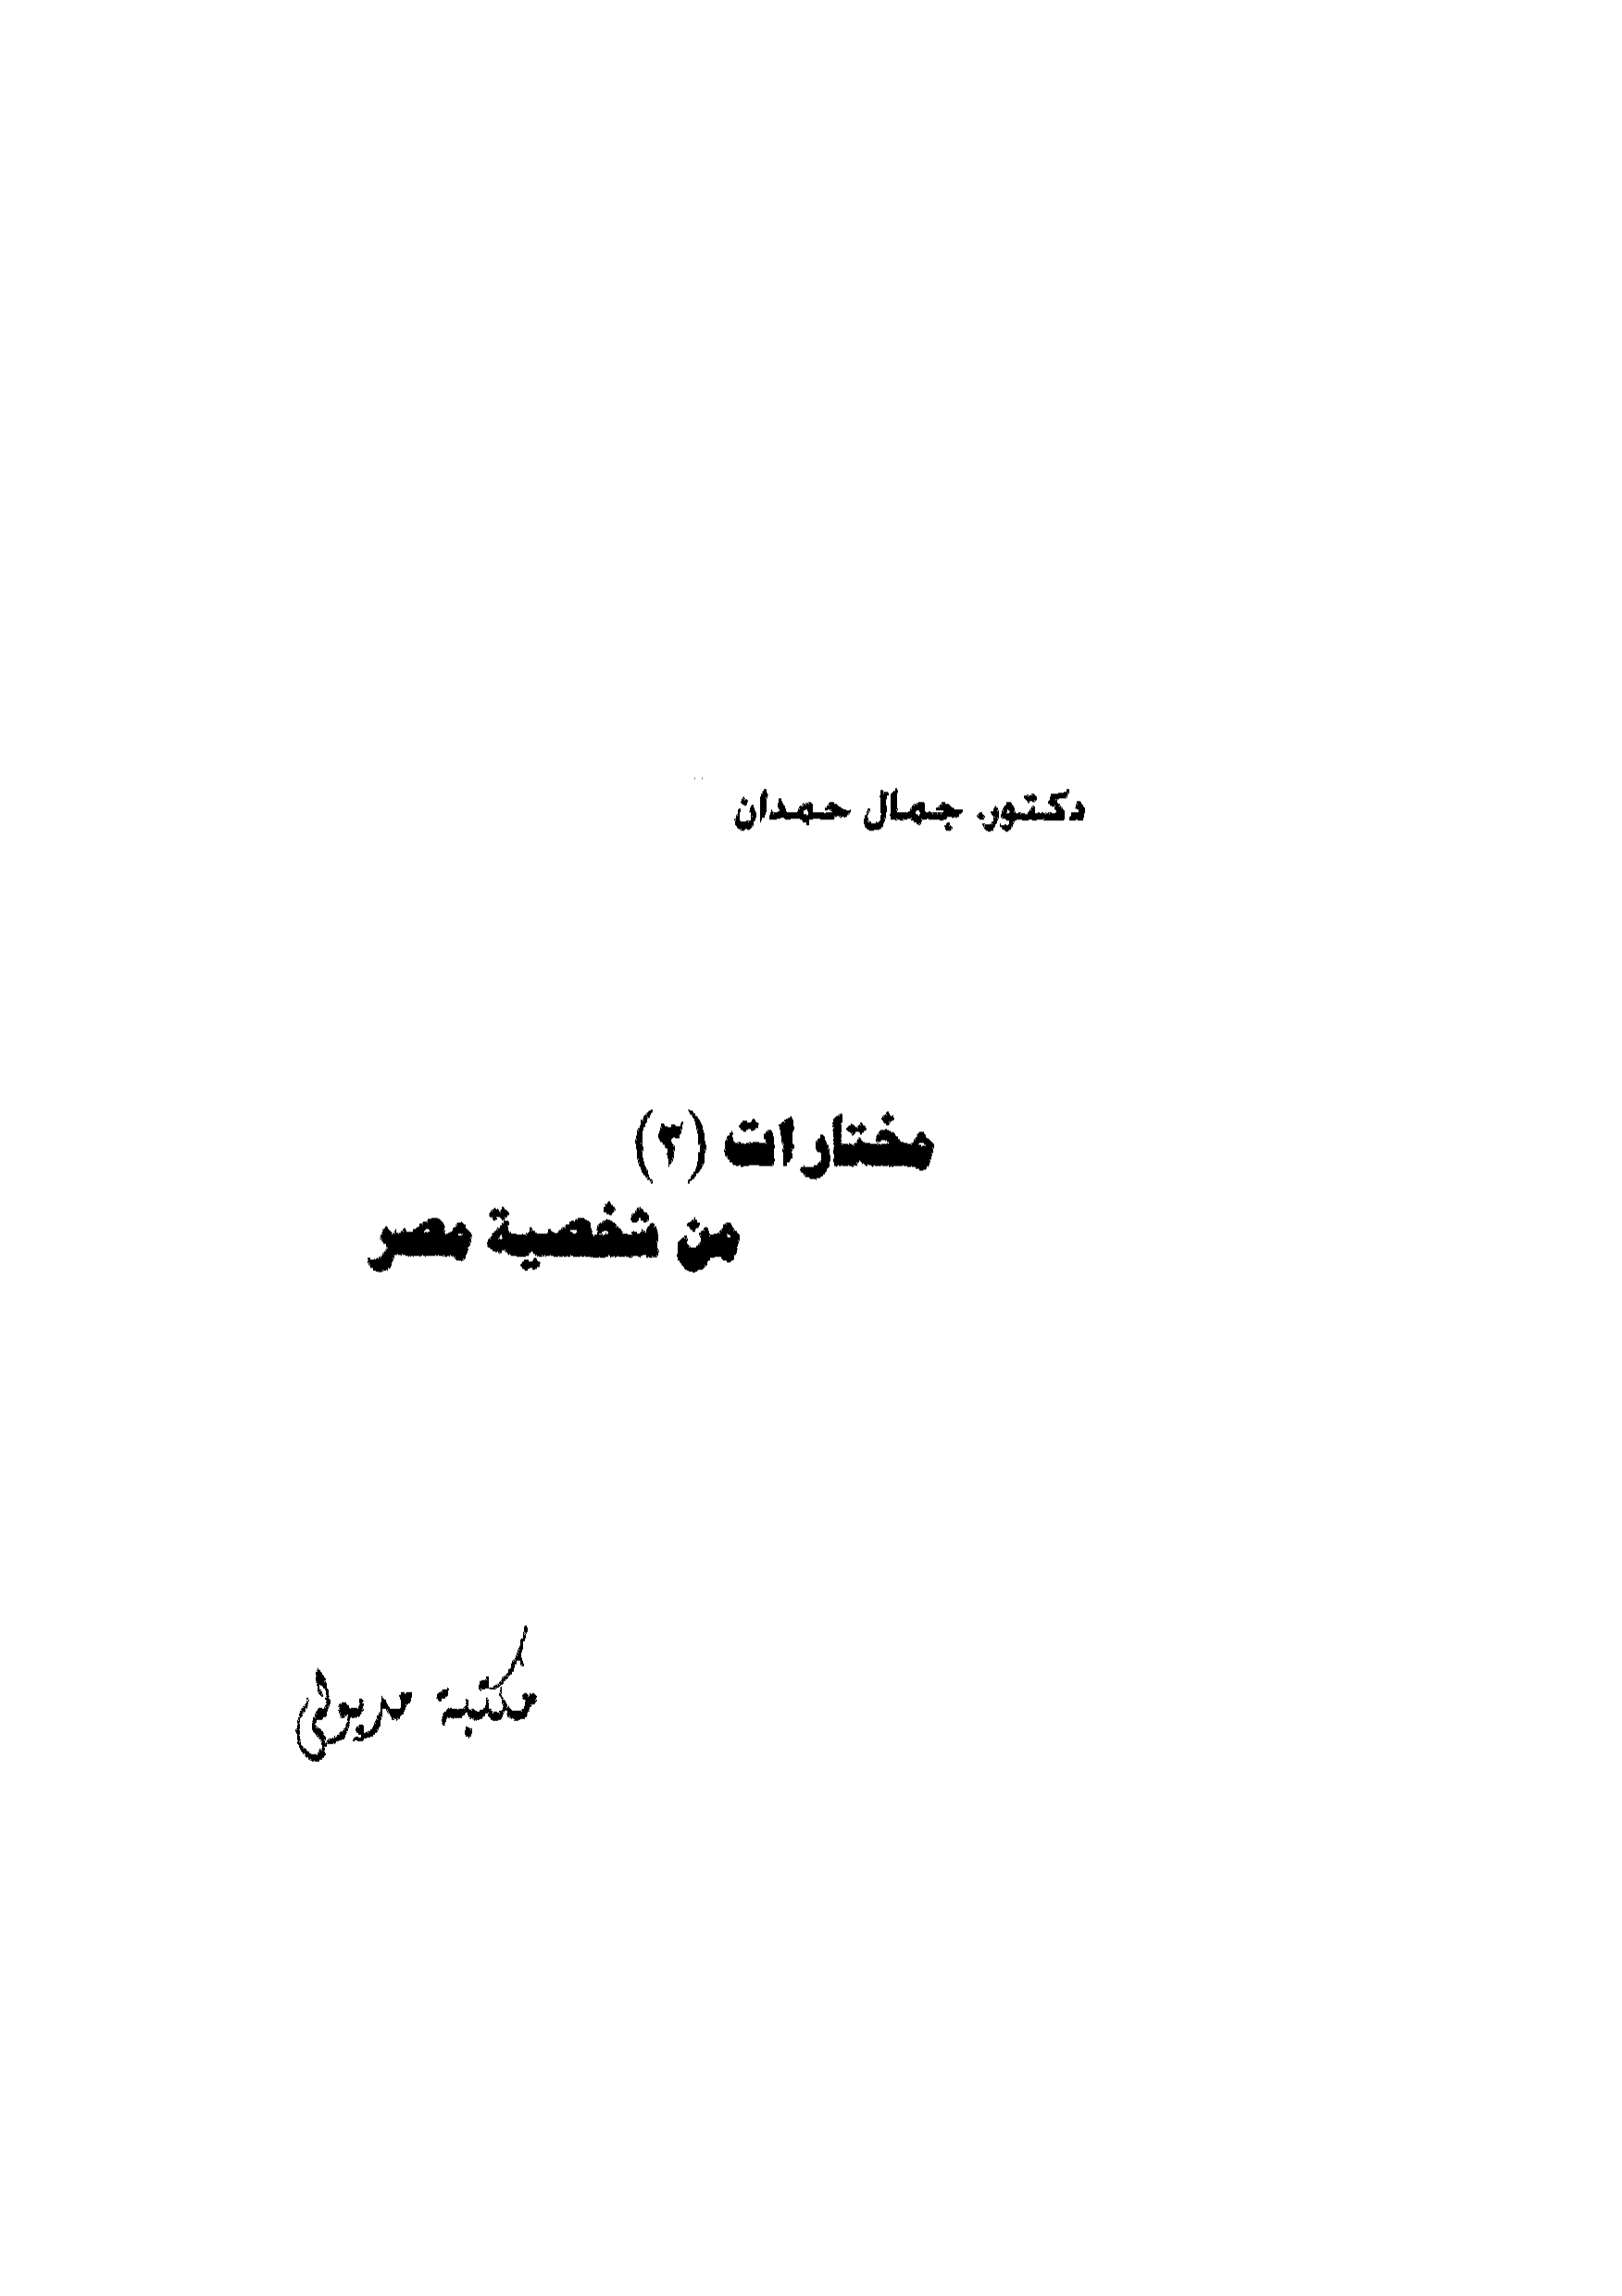 دكتور. جمال حمدان
مختارات (٣)
من شخصية مصر
مكتبة مدبولي